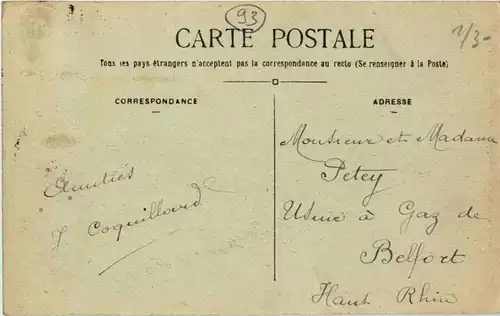 93
1/3-
CARTE POSTALE
Tous les pays étrangers n'acceptent pas la correspondance au recto (Se renseigner à la Poste)
CORRESPONDANCE
Amitiés
Coquillard
ADRESSE
Monsieur et Madame
Petey
Usine à Gaz de
Belfort
Haut Rhin